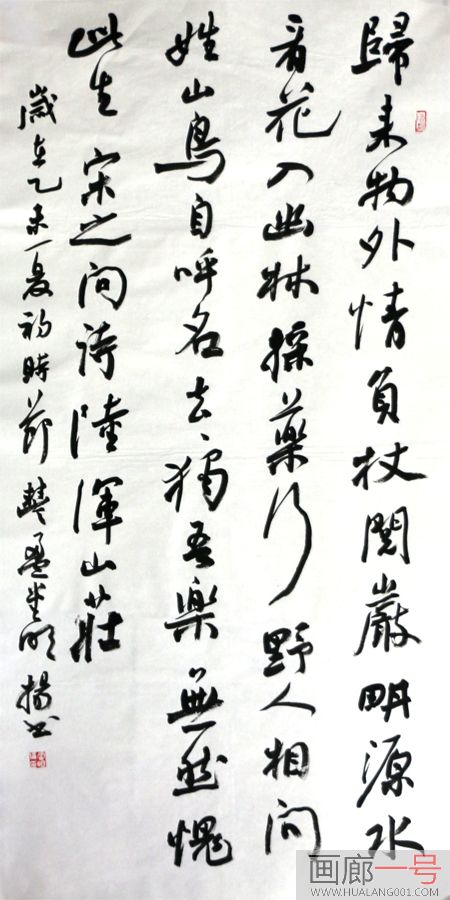 歸来物外情負杖閱巖畊源水
看花入幽林採藥行野人相問
姓山鳥自呼名去々獨吾樂無然愧
此生宋之问詩陸渾山莊
歲在乙未夏初時節揚书
画廊一号
WWW.HUALANG001.COM